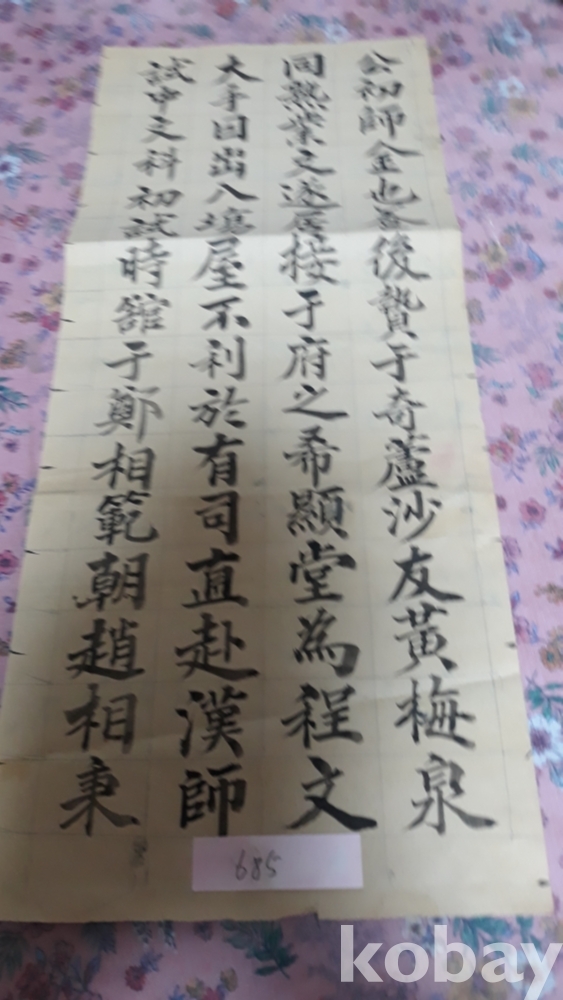 公初師金也吾後贄于奇蘆沙友黃梅泉
同熟業之遂居接于府之希顯堂為程文
大手回出入場屋不利於有司直赴漢師
試中文科初試時舘于鄭相範朝趙相秉
685
kobay